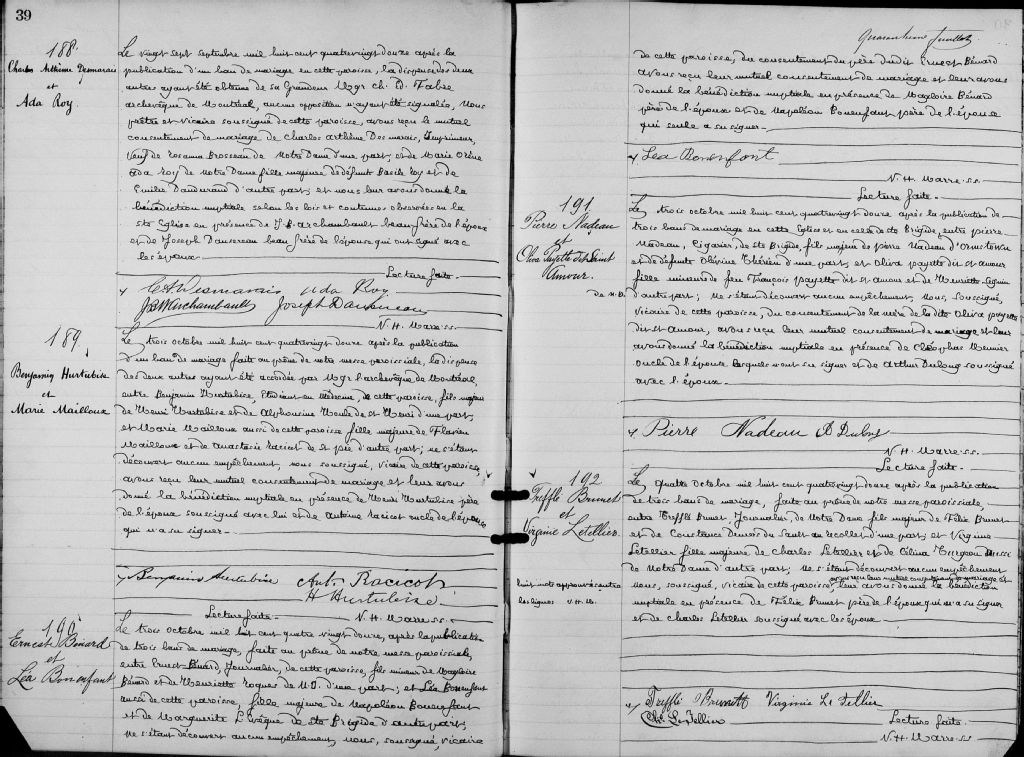 39
188
Charles Arthème Desmarais
et
Ada Roy.
Le vingt sept septembre mil huit cent quatrevingt douze après la
publication d'un ban de mariage en cette paroisse, la dispense des deux
autres ayant été obtenue de sa Grandeur Mgr Ch. Ed. Fabre
archevêque de Montréal, aucune opposition n'ayant été signalée, Nous
prêtre et vicaire soussigné de cette paroisse, avons reçu le mutuel
consentement de mariage de Charles Arthème Desmarais, Imprimeur,
Veuf de Rosanna Brosseau de Notre Dame d'une part, et de Marie
Ada Roy de Notre Dame fille majeure de défunt Basile Roy et de
Emilie Dandurand d'autre part; et nous leur avons donné la
bénédiction nuptiale selon les lois et coutumes observées en la
Ste Eglise en présence de J. B. Archambault beau frère de l'époux
et de Joseph Dansereau beau frère de l'épouse qui ont signé avec
les époux.
Lecture faite.
C A Desmarais Ada Roy
J B Archambault Joseph Dansereau
N. H. Marre. s.s.
189
Benjamin Hurtubise
et
Marie Mailloux
Le trois octobre mil huit cent quatrevingt douze après la publication
d'un ban de mariage fait au prône de notre messe paroissiale, la dispense
des deux autres ayant été accordée par Mgr l'archevêque de Montréal,
entre Benjamin Hurtubise, Etudiant en Médecine, de cette paroisse, fils majeur
de Henri Hurtubise et de Alphonsine de St Henri d'une part,
et Marie Mailloux aussi de cette paroisse fille majeure de Flavien
Mailloux et de Anastasie Racicot de St Pie d'autre part; ne s'étant
découvert aucun empêchement, nous soussigné, vicaire de cette paroisse,
avons reçu leur mutuel consentement de mariage et leur avons
donné la bénédiction nuptiale en présence de Henri Hurtubise père
de l'époux soussigné avec lui et de Antoine Racicot oncle de l'épouse
qui n'a su signer.
Benjamin Hurtubise Ant. Racicot
H Hurtubise
Lecture faite. N. H. Marre s.s.
190
Ernest Bénard
et
Léa Bonenfant
Le trois octobre mil huit cent quatre vingt douze, après la publication
de trois bans de mariage, faite au prône de notre messe paroissiale,
entre Ernest Bénard, Journalier, de cette paroisse, fils mineur de Magloire
Bénard et de Henriette Roques de N. D. d'une part; et Léa Bonenfant
aussi de cette paroisse, fille majeure de Napoléon Bonenfant
et de Marguerite Lévêque de Ste Brigide d'autre part;
ne s'étant découvert aucun empêchement, nous, soussigné, vicaire
Quarantième feuillet
de cette paroisse, du consentement du père dudit Ernest Bénard
avons reçu leur mutuel consentement de mariage et leur avons
donné la bénédiction nuptiale en présence de Magloire Bénard
père de l'époux et de Napoléon Bonenfant père de l'épouse
qui seule a su signer.
Léa Bonenfant
N. H. Marre. s.s.
Lecture faite.
191
Pierre Nadeau
et
Oliva Payette dit Saint
Amour.
de N. D.
Le trois octobre mil huit cent quatrevingt douze après la publication de
trois bans de mariage en cette Eglise et en celle de Ste Brigide, entre Pierre
Nadeau, Cigarier, de Ste Brigide, fils majeur de Pierre Nadeau d'Ormstown
et de défunte Olérine Thérien d'une part, et Oliva Payette dit St Amour
fille mineure de feu François Payette dit St Amour et de Henriette Séguin
d'autre part; ne s'étant découvert aucun empêchement, Nous, soussigné,
vicaire de cette paroisse, du consentement de la mère de la dite Oliva Payette
dit St Amour, avons reçu leur mutuel consentement de mariage et leur
avons donné la bénédiction nuptiale en présence de Cléophas Meunier
oncle de l'épouse lesquels n'ont su signer et de Arthur Dulong soussigné
avec l'époux.
Pierre Nadeau A Dulong
N. H. Marre. s.s.
Lecture faite.
192
Trefflé Brunet
et
Virginie Letellier.
huit mots approuvés entre
les lignes N. H. M.
Le quatre octobre mil huit cent quatrevingt douze après la publication
de trois bans de mariage, faite au prône de notre messe paroissiale,
entre Trefflé Brunet, Journalier, de Notre Dame fils majeur de Félix Brunet
et de Constance Demers du Sault au recollet d'une part; et Virginie
Letellier fille majeure de Charles Letellier et de Célina Turgeon aussi
de Notre Dame d'autre part; ne s'étant découvert aucun empêchement
avons reçu leur mutuel consentement de mariage et
nous, soussigné, vicaire de cette paroisse, leur avons donné la bénédiction
nuptiale en présence de Félix Brunet père de l'époux qui n'a su signer
et de Charles Letellier soussigné avec les époux.
Trefflé Brunett Virginie Le Tellier
Chs. Le Tellier
Lecture faite.
N. H. Marre. s.s.